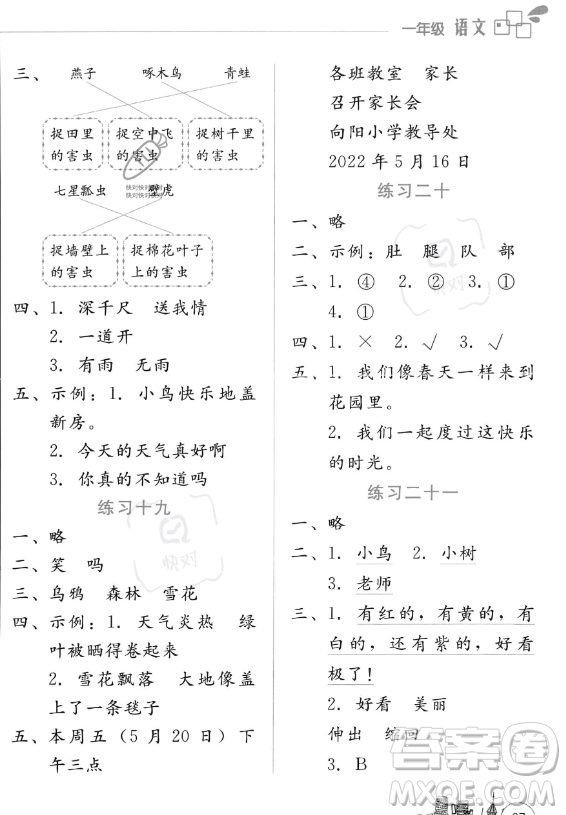 一年级 语文
三、 燕子 啄木鸟 青蛙
捉田里的害虫 捉空中飞的害虫 捉树干里的害虫
七星瓢虫 壁虎
快对快对快对
快对快对快对
捉墙壁上的害虫 捉棉花叶子上的害虫
四、1. 深千尺 送我情
2. 一道开
3. 有雨 无雨
五、示例：1. 小鸟快乐地盖
新房。
2. 今天的天气真好啊
3. 你真的不知道吗
练习十九
一、略
二、笑 吗
三、乌鸦 森林 雪花
四、示例：1. 天气炎热 绿
叶被晒得卷起来
2. 雪花飘落 大地像盖
上了一条毯子
五、本周五（5月20日）下
午三点
各班教室 家长
召开家长会
向阳小学教导处
2022年5月16日
练习二十
一、略
二、示例：肚 腿 队 部
三、1. ④ 2. ② 3. ①
4. ①
四、1. × 2. √ 3. √
五、1. 我们像春天一样来到
花园里。
2. 我们一起度过这快乐
的时光。
练习二十一
一、略
二、1. 小鸟 2. 小树
3. 老师
三、1. 有红的，有黄的，有
白的，还有紫的，好看
极了！
2. 好看 美丽
伸出 缩回
3. B
快对
快对
答案卷